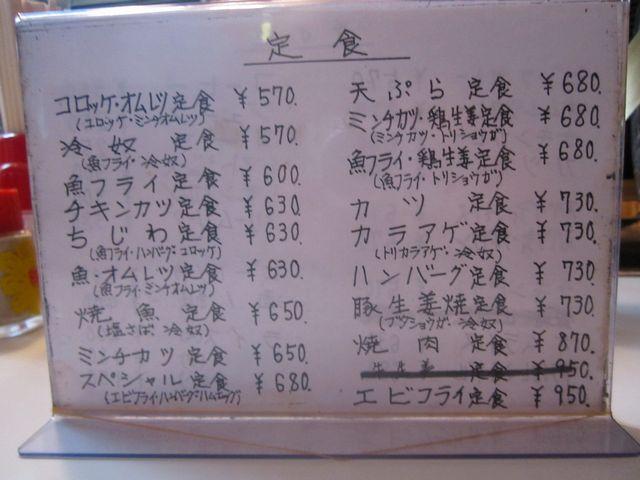 定食
コロッケ・オムレツ定食 ¥570.
(コロッケ・ミンチオムレツ)
冷奴 定食 ¥570.
(魚フライ・冷奴)
魚フライ定食 ¥600.
チキンカツ定食 ¥630.
ちじわ定食 ¥630.
(魚フライ・ハンバーグ・コロッケ)
魚・オムレツ定食 ¥630.
(魚フライ・ミンチオムレツ)
焼魚 定食 ¥650.
(塩さば 冷奴)
ミンチカツ 定食 ¥650.
スペシャル定食 ¥680.
(エビフライ・ハンバーグ・ハムエッグ)
天ぷら 定食 ¥680.
ミンチカツ・鶏生姜定食 ¥680.
(ミンチカツ・トリショウガ)
魚フライ・鶏生姜定食 ¥680.
(魚フライ・トリショウガ)
カツ 定食 ¥730.
カラアゲ定食 ¥730.
(トリカラアゲ・冷奴)
ハンバーグ定食 ¥730.
豚生姜焼定食 ¥730.
(ブタショウガ 冷奴)
焼肉 定食 ¥870.
定食 ¥950.
エビフライ定食 ¥950.